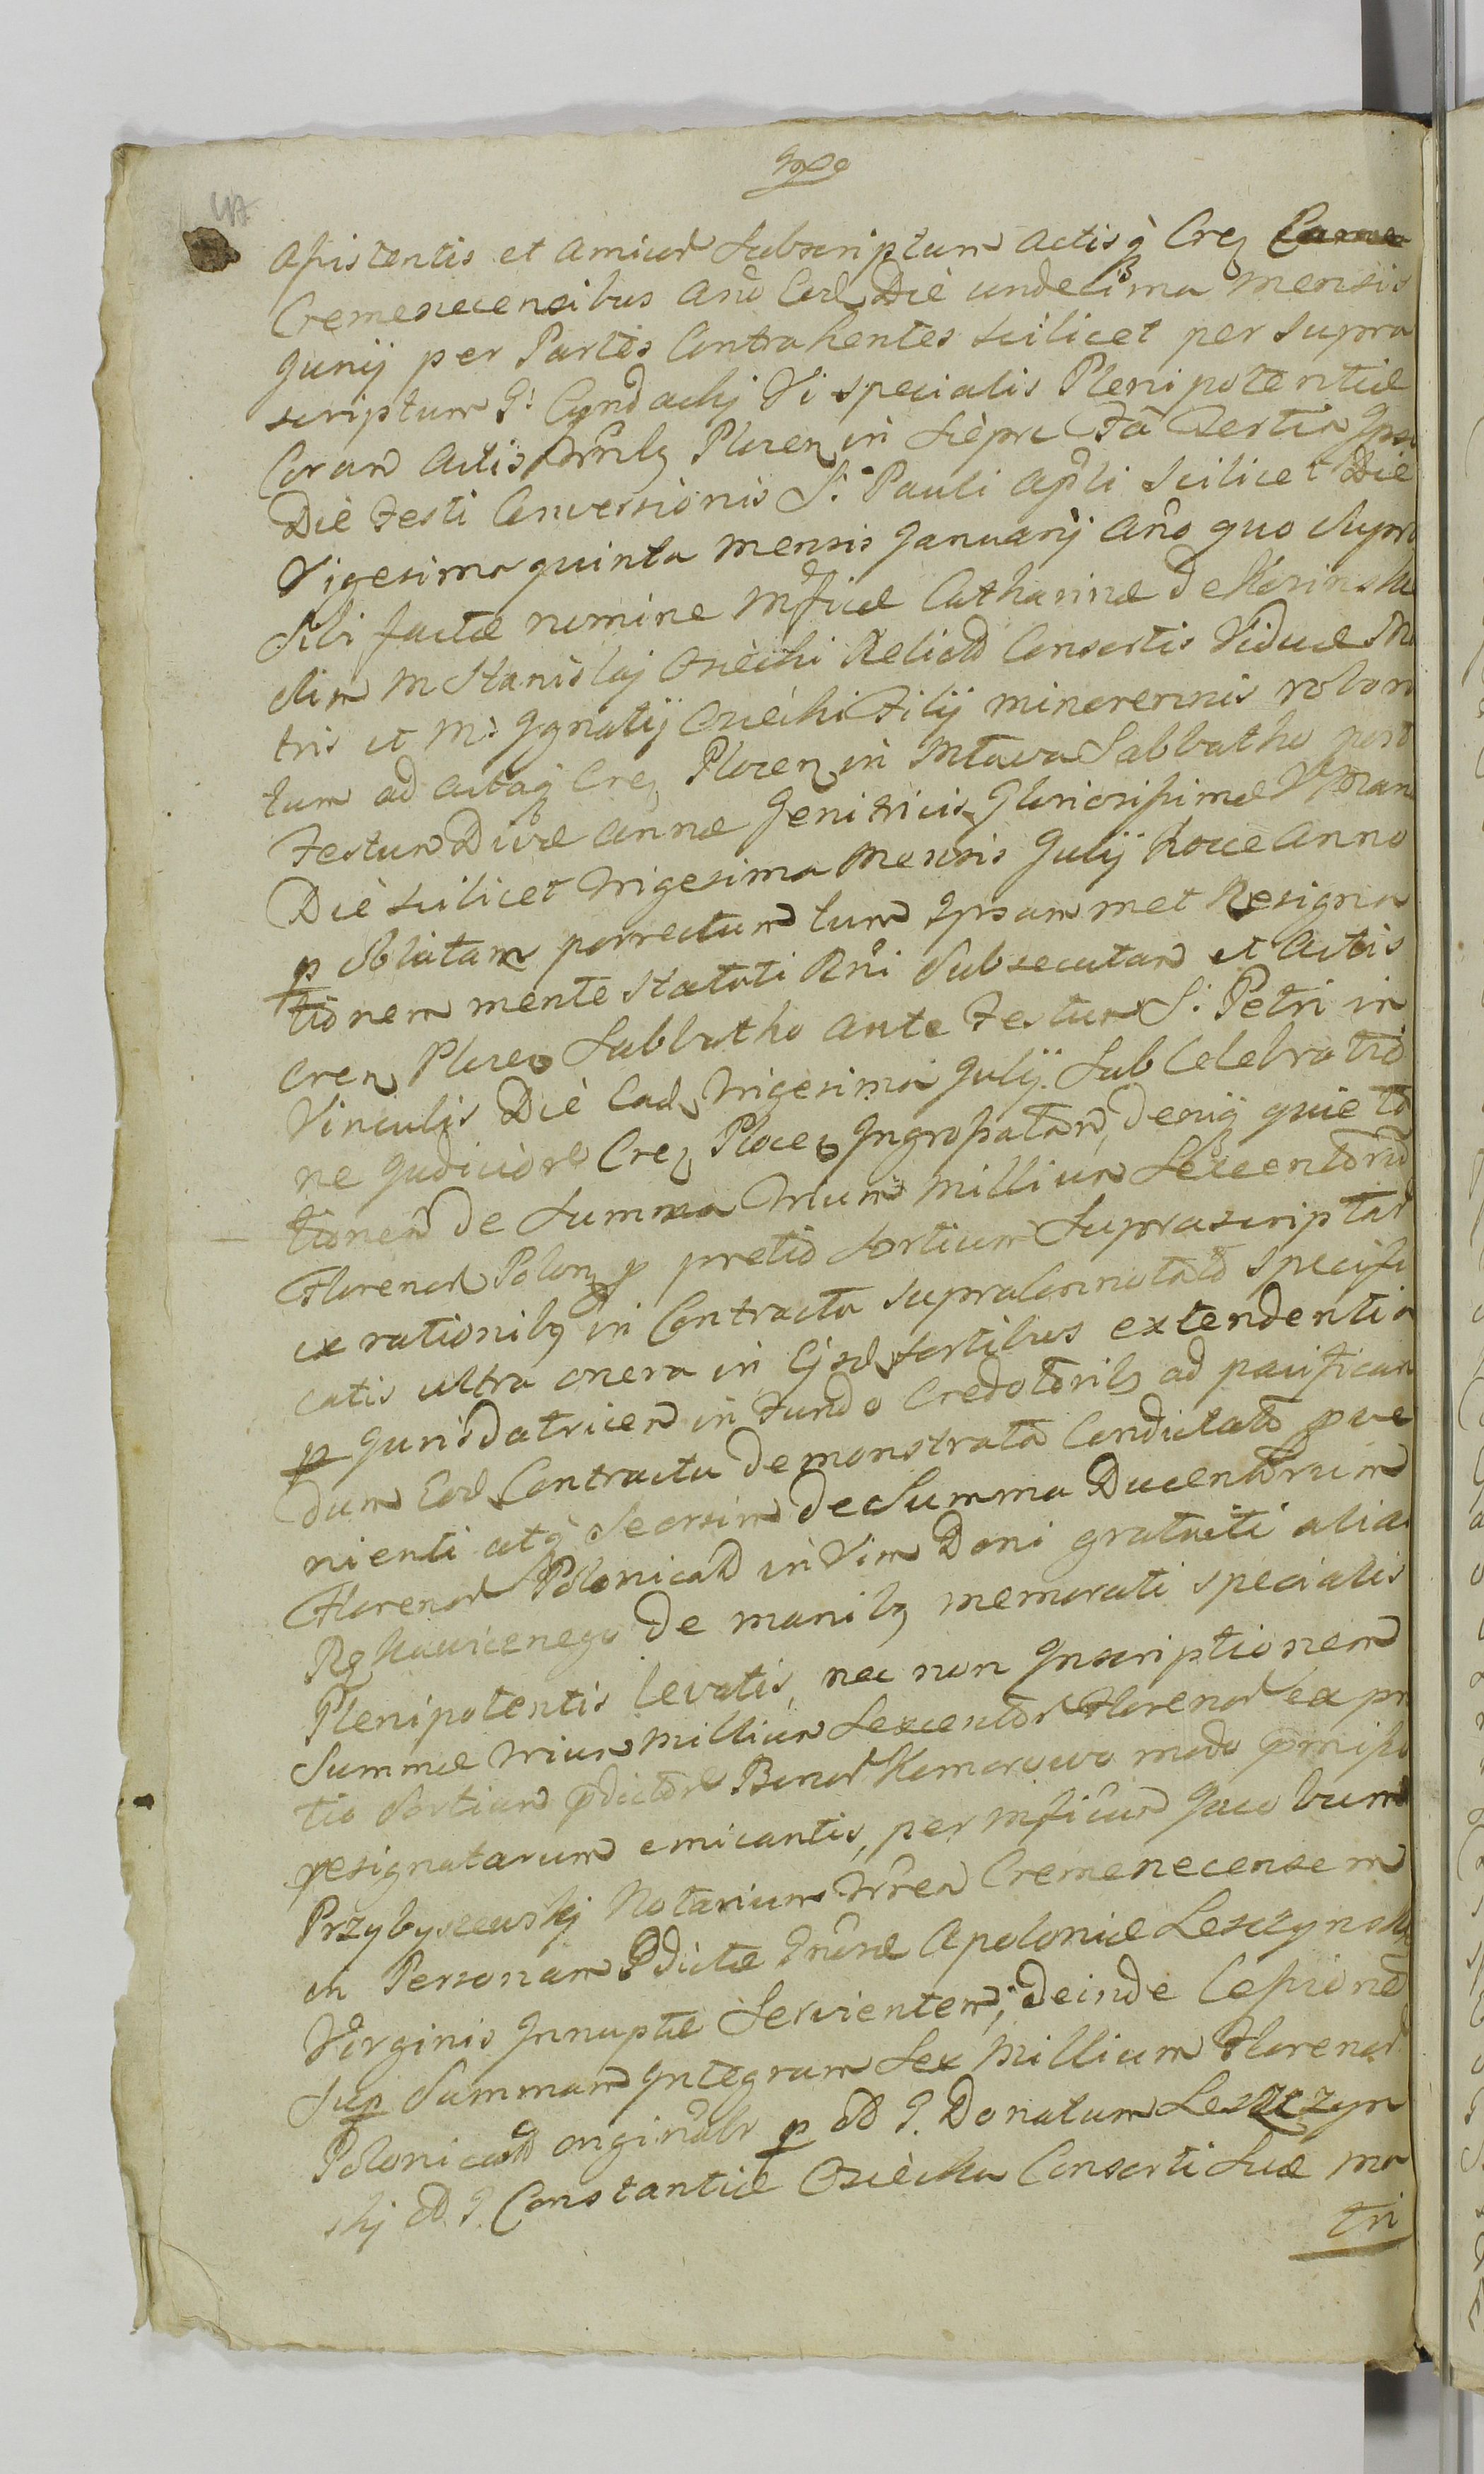 47
Assistentis et Amicor Subscriptum Actisq Creg
Cremenecensibus Ano Eod Die undecima mensis
Junij per Partes Contrahentes scilicet per supra
scriptum G: Cynd achj Vi specialis Plenipotentiæ
Coram Actis Plocen in Sieprc Fa Tertia Ipso
Die Festi Conversionis S: Pauli Apli scilicet Die
Vigesima quinta mensis Januarij Ano quo supra
Sibi factæ nomine Mficæ Catharinæ de
olim M Stanislaj Osiecki Relicta Consortis Viduæ Ma
tris et M: Ignatij Osiecki Filij minorennis robora
tum ad Actaq Creg Plocen in Mlawa Sabbatho post
Festum Divæ Annæ Genitricis Gloriosissimæ V Mariæ
Die scilicet trigesima Mensis Julij hocce Anno
p Oblatam porrectum tum Ipsammet Resigna
tionem mente Statuti Rni Subsecutam et Actis
Cren Plocen Sabbatho ante Festum S: Petri in
Vinculis Die Ead Trigesima Julij Sub Celebratio
ne Judiciorl Creg Plocen Ingrossatam, deniq quieta
tionem de Summa Trium Millium Sexcentoru
Florenor Polon p pretio Sortium Suprascriptar
ex rationibg in Contractu supra connotato specifi
catis ultra onera in Ejsd Sortibus extendentia
p Juris datricem in Fundo Creditoribg ad pacifican
dum Eod Contractu demonstrata Condictato pve
nienti atq Seorsim de Summa Ducentorum
Florenor Polonical in Vim Doni gratuiti alias
Rękawicznego de manibg memorati specialis
Plenipotentis levatis, nec non Inscriptionem
Summæ trium Millium Sexcentor Florenor ex pre
tio Sortium pdictor Bonor Komorowo modo pmisso
resignatarum emicantis, per Mficum Jacobum
Przybyszewskj Notarium Trren Cremenecensem
in Personam Pdictæ Gnosæ Apoloniæ Leszczynskj
Virginis Innuptæ Servientem; deinde Cessione
sup Summam Integram Sex Millium Florenor
Polonical originalr p M G. Donatum Leszczyn
skj M G. Constantiæ Osiecka Consorti Suæ ma
tri